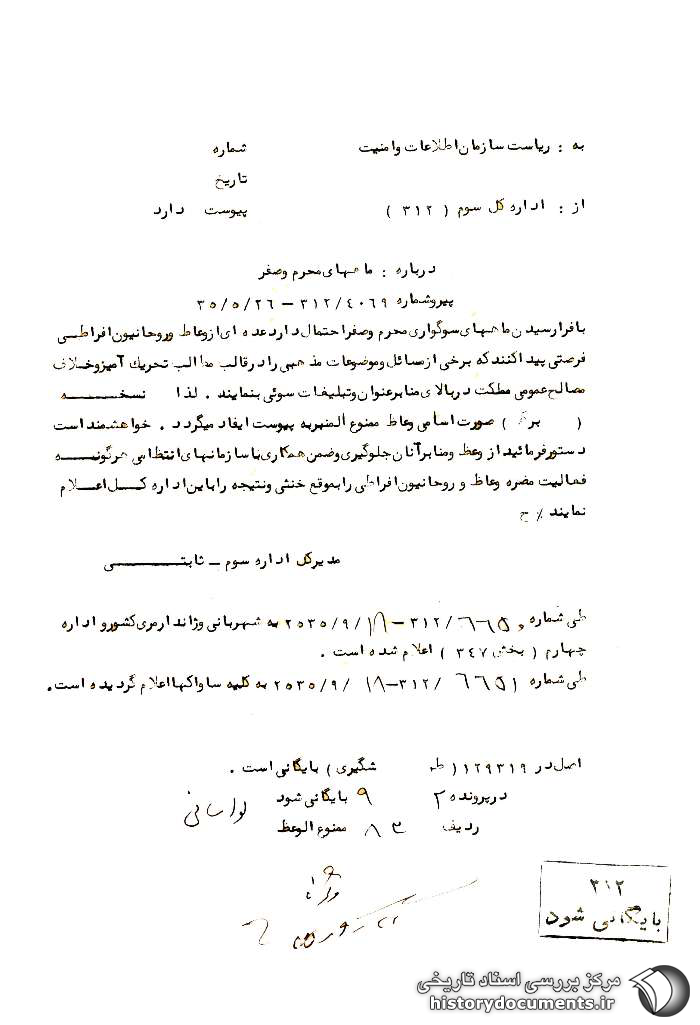 به : ریاست سازمان اطلاعات و امنیت    شماره
تاریخ
از : اداره کل سوم ( ۳۱۲ )    پیوست دارد
درباره : ماههای محرم و صفر
پیرو شماره ۳۱۲/۴۰۶۹ – ۳۵/۵/۲۶
با فرا رسیدن ماههای سوگواری محرم و صفر احتمال دارد عده ای از وعاظ و روحانیون افراطی
فرصتی پیدا کنند که برخی از مسائل و موضوعات مذهبی را در قالب مطالب تحریک آمیز و خلاف
مصالح عمومی مملکت در بالای منابر عنوان و تبلیغات سوئی بنمایند . لذا نسخه
( برگ ) صورت اسامی وعاظ ممنوع المنبر به پیوست ایفاد میگردد . خواهشمند است
دستور فرمائید از وعظ و منابر آنان جلوگیری و ضمن همکاری با سازمانهای انتظامی هرگونه
فعالیت مضره وعاظ و روحانیون افراطی را بموقع خنثی و نتیجه را باین اداره کل اعلام
نمایند ٪ ح
مدیر کل اداره سوم – ثابتی
طی شماره ۶۶۵۰/۳۱۲–۲۵۳۵/۹/۱۸ به شهربانی و ژاندارمری کشور و اداره
چهارم ( بخش ۳۴۷ ) اعلام شده است .
طی شماره ۶۶۵۱/۳۱۲–۲۵۳۵/۹/۱۸ به کلیه ساواکها اعلام گردیده است .
اصل در ۱۲۹۳۱۹ ( شگیری ) بایگانی است .
در پرونده ۲ ۹ بایگانی شود
لواسانی
ردیف ۸۳ ممنوع الوعظ
۳۱۲
بایگانی شود
مرکز بررسی اسناد تاریخی
historydocuments.ir